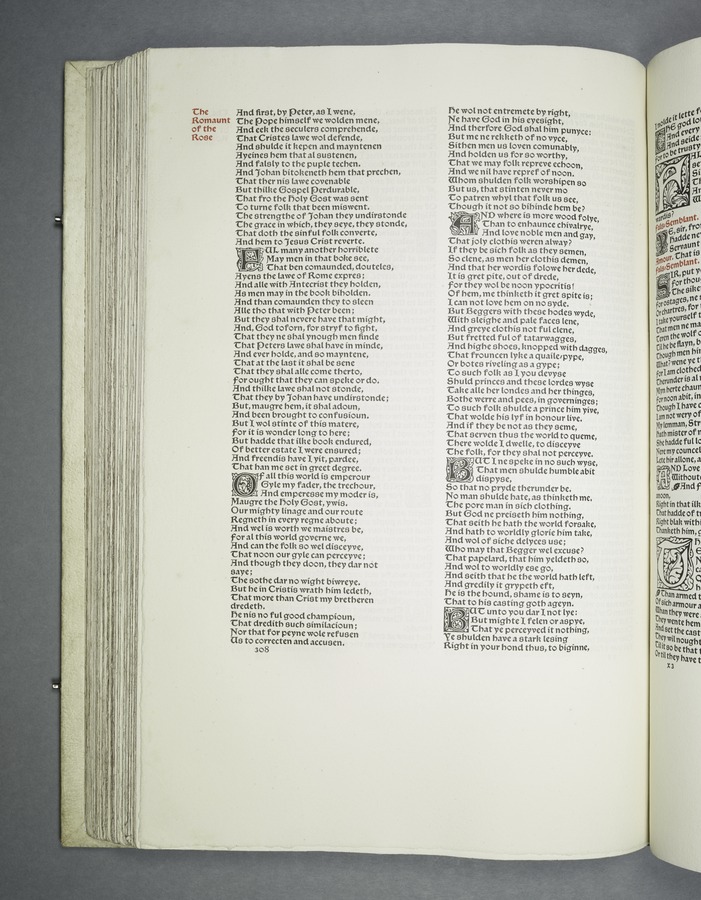 The
Romaunt
of the
Rose
And first, by Peter, as I wene,
The Pope himself we wolden mene,
And eek the seculers comprehende,
That Cristes lawe wol defende,
And shulde it kepen and mayntenen
Ayeines hem that al sustenen,
And falsly to the puple techen.
And Johan bitokeneth hem that prechen,
That ther nis lawe covenable
But thilke Gospel Perdurable,
That fro the Holy Gost was sent
To turne folk that been miswent.
The strengthe of Johan they undirstonde
The grace in which, they seye, they stonde,
That doth the sinful folk converte,
And hem to Jesus Crist reverte.
FUL many another horriblete
May men in that boke see,
That ben comaunded, douteles,
Ayens the lawe of Rome expres;
And alle with Antecrist they holden,
As men may in the book biholden.
And than comaunden they to sleen
Alle tho that with Peter been;
But they shal nevere have that might,
And, God toforn, for stryf to fight,
That they ne shal ynough men finde
That Peters lawe shal have in minde,
And ever holde, and so mayntene,
That at the last it shal be sene
That they shal alle come therto,
For ought that they can speke or do.
And thilke lawe shal not stonde,
That they by Johan have undirstonde;
But, maugre hem, it shal adoun,
And been brought to confusioun.
But I wol stinte of this matere,
For it is wonder long to here;
But hadde that ilke book endured,
Of better estate I were ensured;
And freendis have I yit, pardee,
That han me set in greet degree.
Of all this world is emperour
Gyle my fader, the trechour,
And emperesse my moder is,
Maugre the Holy Gost, ywis.
Our mighty linage and our route
Regneth in every regne aboute;
And wel is worth we maistres be,
For al this world governe we,
And can the folk so wel disceyve,
That noon our gyle can perceyve;
And though they doon, they dar not
saye;
The sothe dar no wight biwreye.
But he in Cristis wrath him ledeth,
That more than Crist my bretheren
dredeth.
He nis no ful good champioun,
That dredith such similacioun;
Nor that for peyne wole refusen
Us to correcten and accusen.
308
He wol not entremete by right,
Ne have God in his eyesight,
And therfore God shal him punyce;
But me ne rekketh of no vyce,
Sithen men us loven comunably,
And holden us for so worthy,
That we may folk repreve echoon,
And we nil have repref of noon.
Whom shulden folk worshipen so
But us, that stinten never mo
To patren whyl that folk us see,
Though it not so bihinde hem be?
AND where is more wood folye,
Than to enhaunce chivalrye,
And love noble men and gay,
That joly clothis weren alway?
If they be sich folk as they semen,
So clene, as men her clothis demen,
And that her wordis folowe her dede,
It is gret pite, out of drede,
For they wol be noon ypocritis!
Of hem, me thinketh it gret spite is;
I can not love hem on no syde.
But Beggers with these hodes wyde,
With sleighe and pale faces lene,
And greye clothis not ful clene,
But fretted ful of tatarwagges,
And highe shoes, knopped with dagges,
That frouncen lyke a quaile-pype,
Or botes riveling as a gype;
To such folk as I you devyse
Shuld princes and these lordes wyse
Take alle her londes and her thinges,
Bothe werre and pees, in governinges;
To such folk shulde a prince him yive,
That wolde his lyf in honour live.
And if they be not as they seme,
That serven thus the world to queme,
There wolde I dwelle, to disceyve
The folk, for they shal not perceyve.
BUT I ne speke in no such wyse,
That men shulde humble abit
dispyse,
So that no pryde therunder be.
No man shulde hate, as thinketh me,
The pore man in sich clothing.
But God ne preiseth him nothing,
That seith he hath the world forsake,
And hath to worldly glorie him take,
And wol of siche delyces use;
Who may that Begger wel excuse?
That papelard, that him yeldeth so,
And wol to worldly ese go,
And seith that he the world hath left,
And gredily it grypeth eft,
He is the hound, shame is to seyn,
That to his casting goth ageyn.
BUT unto you dar I not lye:
But mighte I felen or aspye,
That ye perceyved it nothing,
Ye shulden have a stark lesing
Right in your hond thus, to biginne,